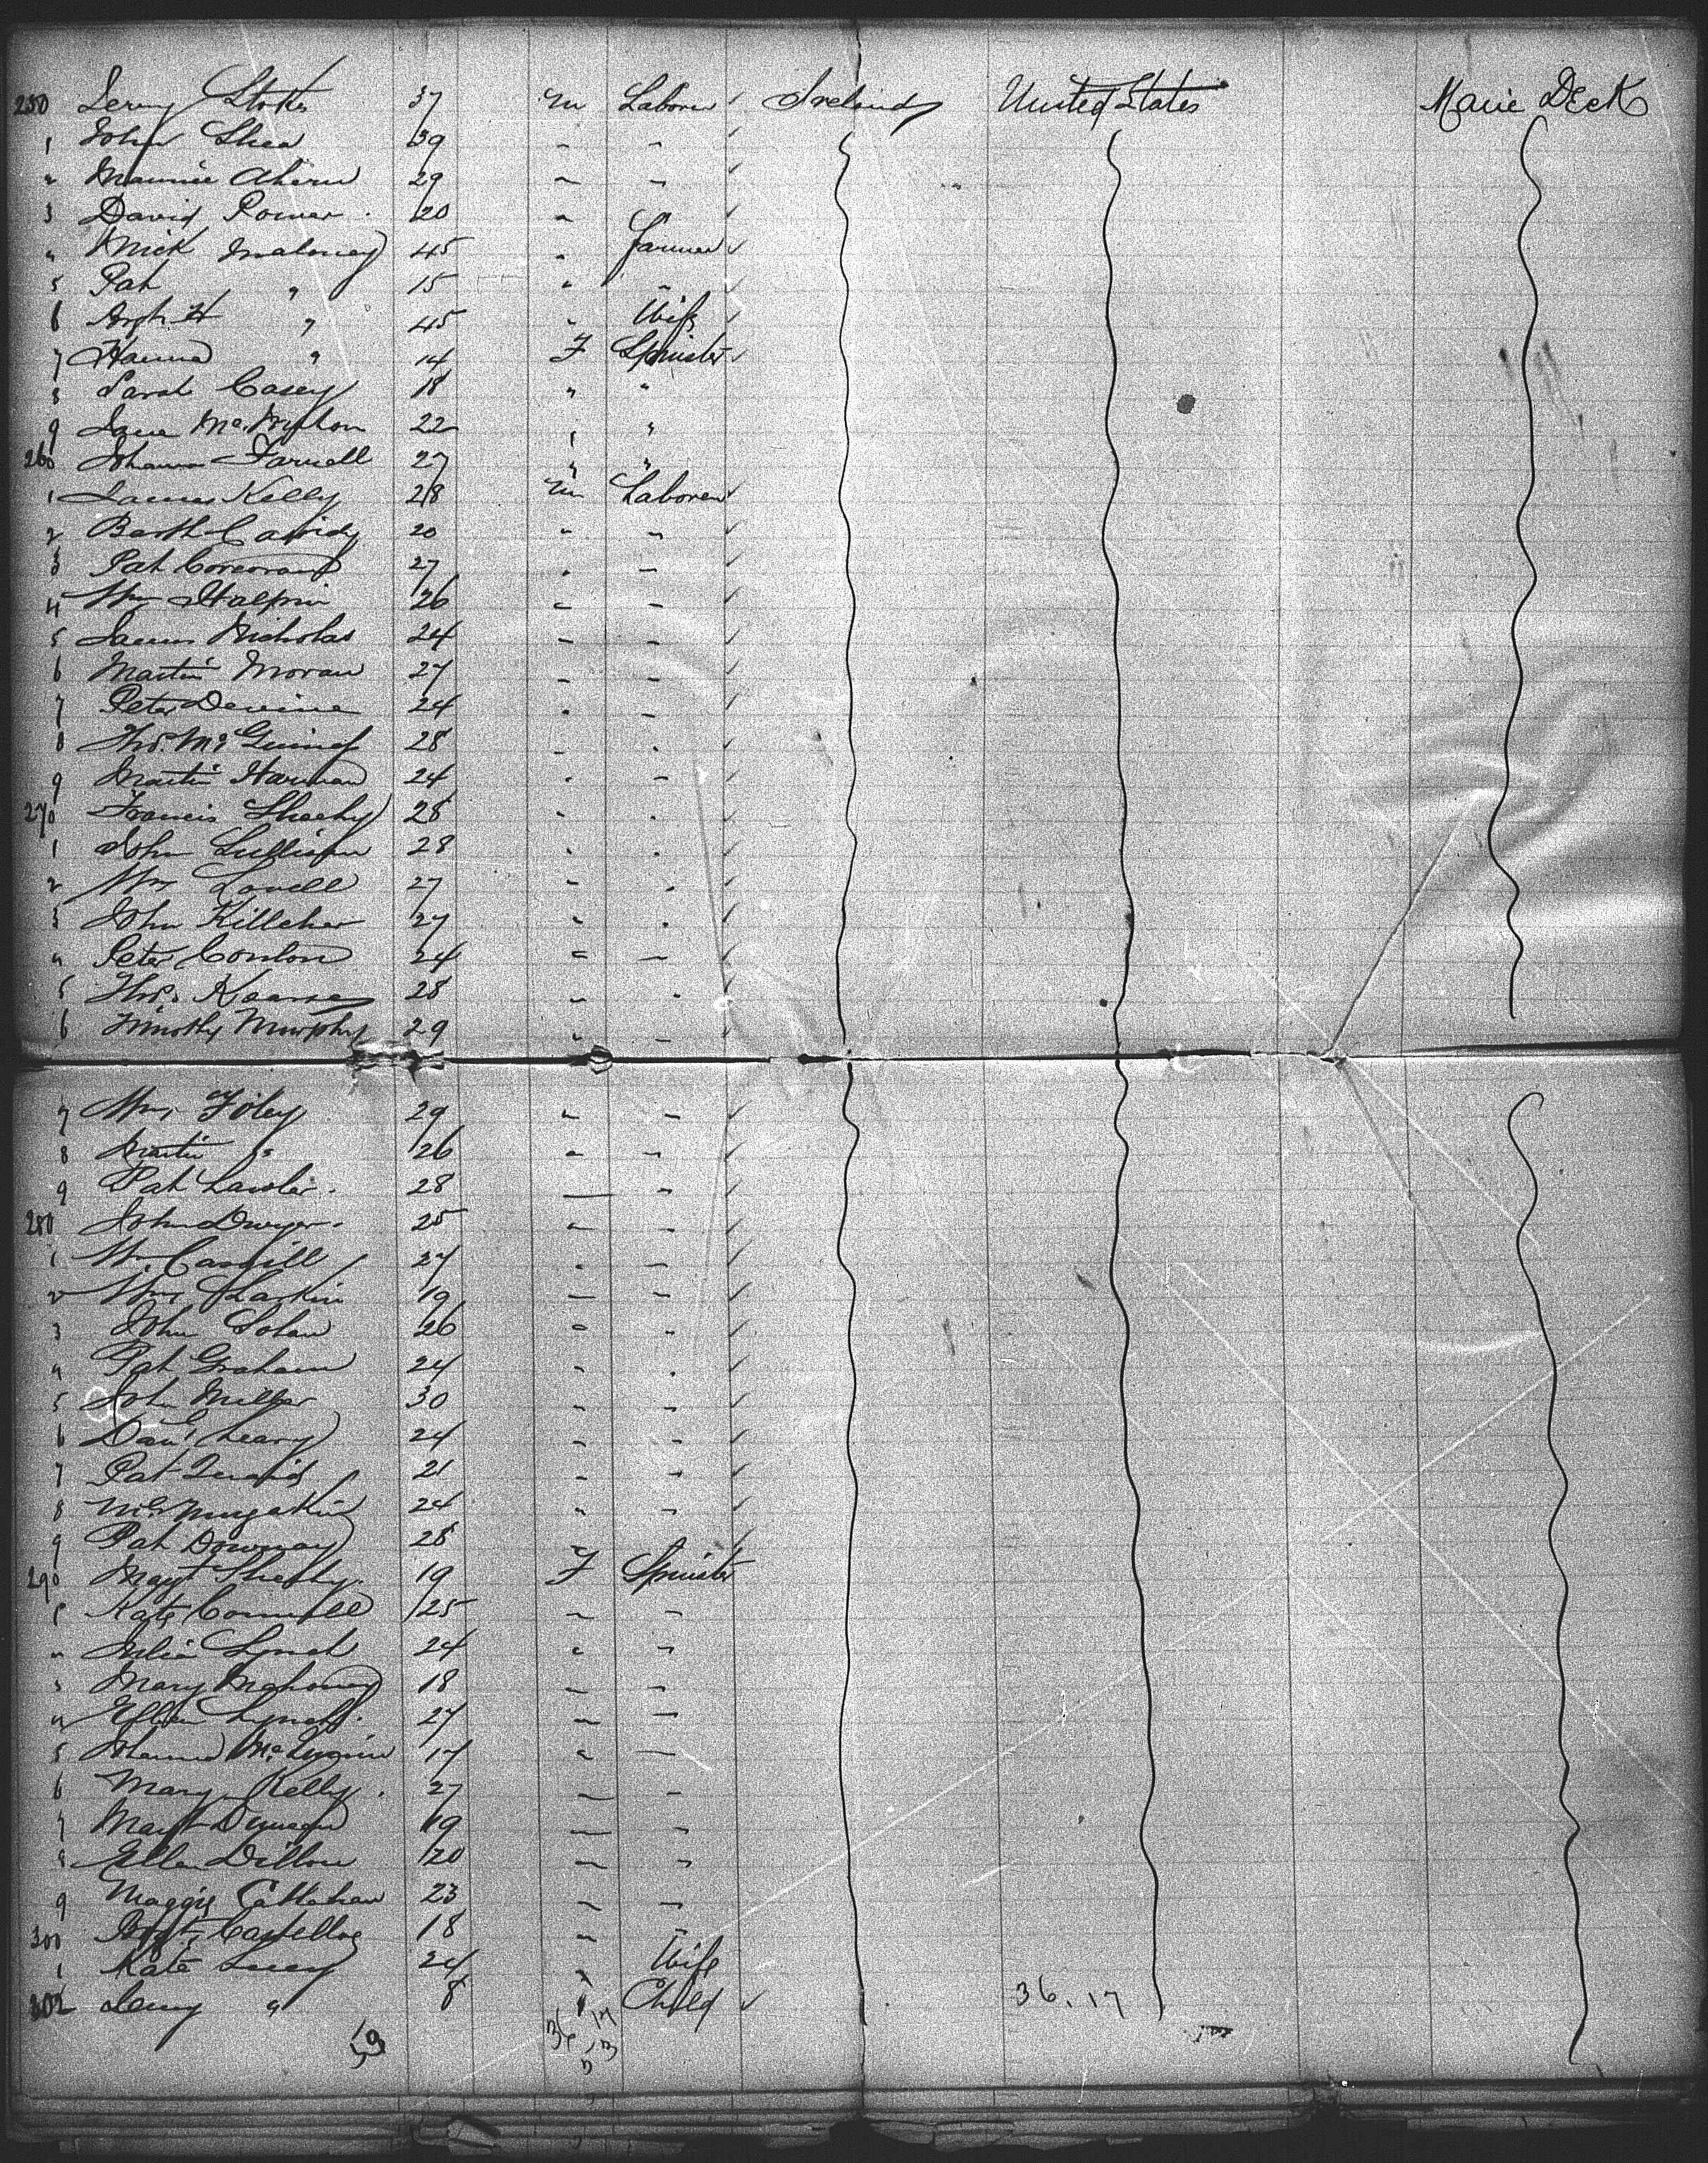 250 Jerry Stokes 37 m Laborer Ireland United States Main Deck
1 John Shea 39 " "
2 Maurice Ahern 29 " "
3 David Power 20 "
4 Mick Maloney 45 " Farmer
5 Pat " 15 " "
6 " 45 " Wife
7 Hanna " 14 F Spinster
8 Sarah Casey 18 " "
9 Jane McMahon 22 " "
260 Johanna Farrell 27 " "
1 James Kelly 28 m Laborer
2 Barth Cassidy 20 " "
3 Pat Corcoran 27 " "
4 Wm Halpin 26 " "
5 James Nicholas 24 " "
6 Martin Moran 27 " "
7 Peter Devine 24 " "
8 Thos. McGuiness 28 " "
9 Martin 24 " "
270 Francis Sheehy 28 " "
1 John Sullivan 28 " "
2 Wm Lovell 27 " "
3 John Killeher 27 " "
4 Peter Conlon 24 " "
5 Thos. 28 " "
6 Timothy Murphy 29 " "
7 Wm. Foley 29 " "
8 Martin " 26 " "
9 Pat Lawler 28 " "
280 John Dwyer 25 " "
1 Wm 27 " "
2 Wm. Larkin 19 " "
3 John 26 " "
4 Pat Graham 24 " "
5 John 30 " "
6 Danl Leary 24 " "
7 Pat 21 " "
8 24 " "
9 Pat 28 "
290 Magt Sheehy 19 F Spinster
1 Kate Connell 25 " "
2 Julia Lynch 24 " "
3 Mary Mahoney 18 " "
4 Ellen Lynch 27 " "
5 Johanna 17 " "
6 Mary Kelly 27 " "
7 Magt 19 " "
8 Ellen Dillon 20 " "
9 Maggie Callahan 23 " "
300 Costelloe 18 " "
1 Kate 24 " Wife
302 Jerry " 8 Child 36.17
53 36 17
53